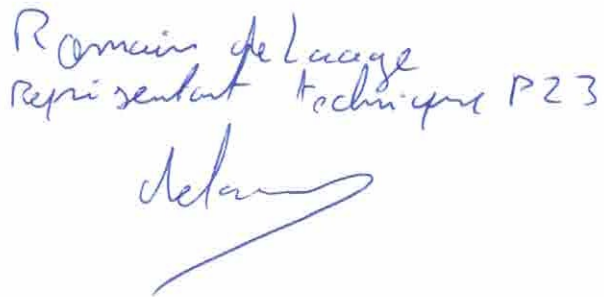 Romain de Lacage
Représentant technique P23